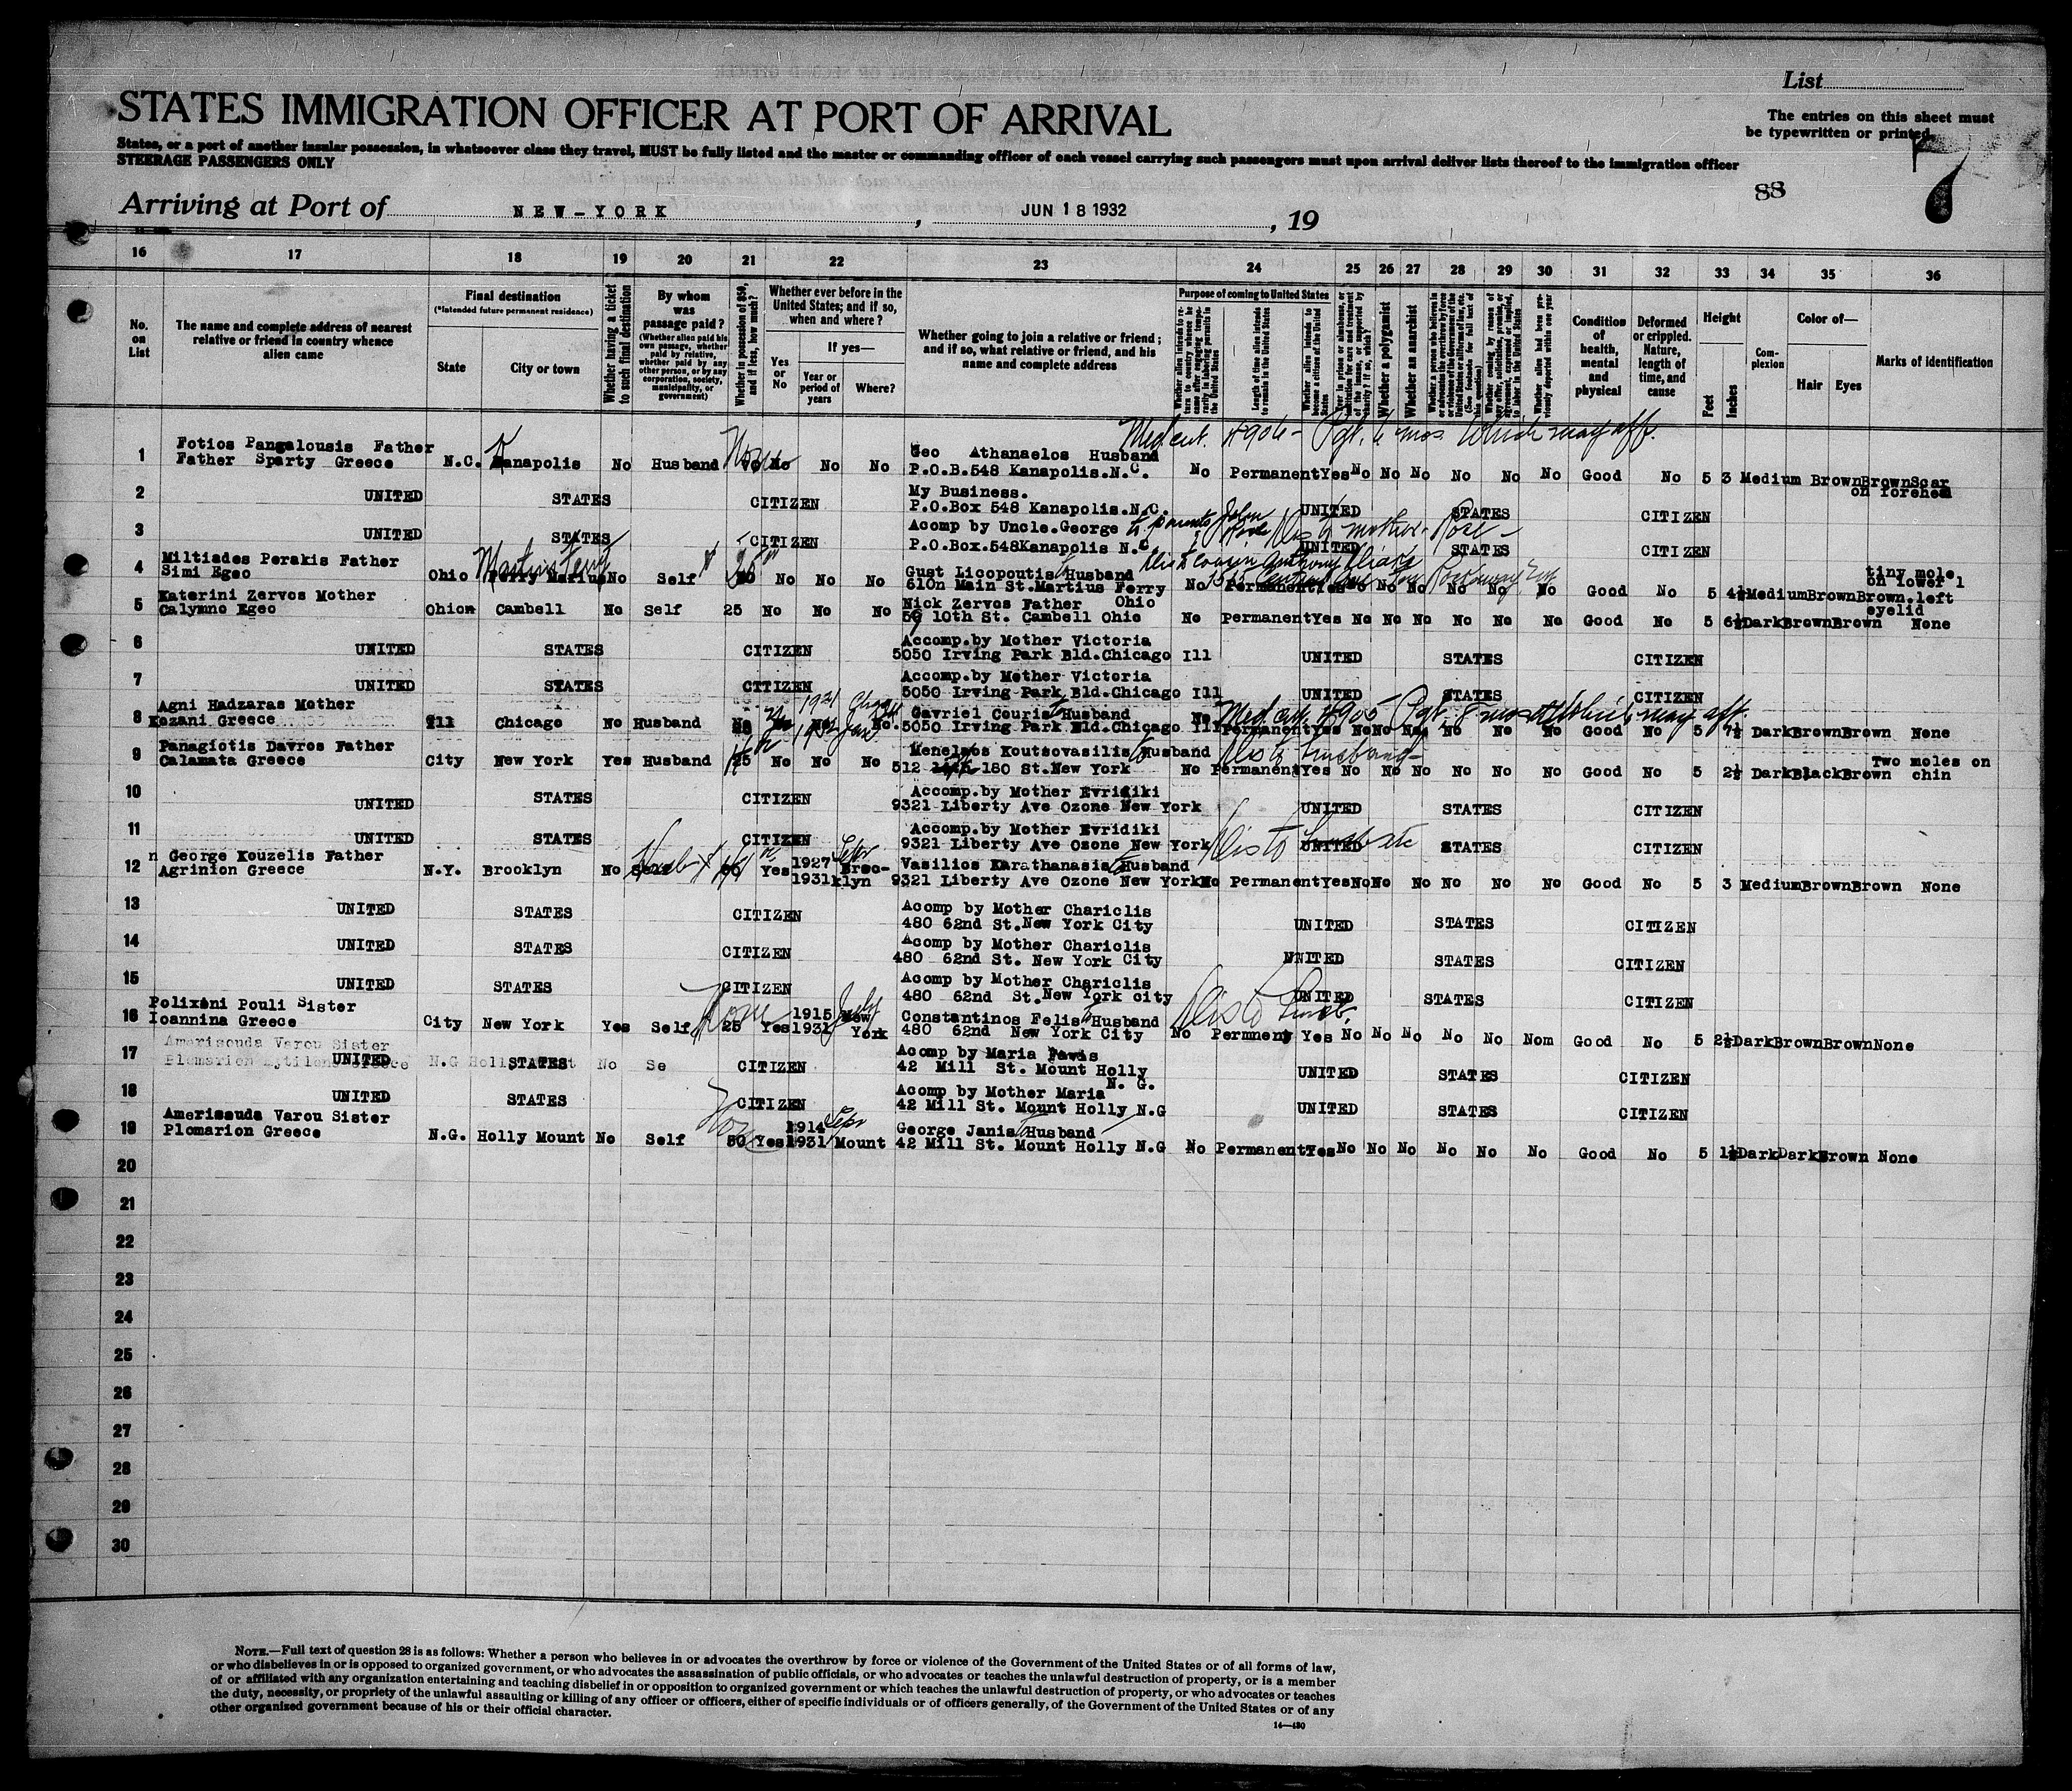 List
STATES IMMIGRATION OFFICER AT PORT OF ARRIVAL
The entries on this sheet must
be typewritten or printed.
States, or a port of another insular possession, in whatsoever class they travel, MUST be fully listed and the master or commanding officer of each vessel carrying such passengers must upon arrival deliver lists thereof to the immigration officer
STEERAGE PASSENGERS ONLY
88 7
Arriving at Port of NEW-YORK, JUN 18 1932, 19
16 17 18 19 20 21 22 23 24 25 26 27 28 29 30 31 32 33 34 35 36
No. on List
The name and complete address of nearest relative or friend in country whence alien came
Final destination
(*Intended future permanent residence)
State
City or town
Whether having a ticket to such final destination
By whom was passage paid?
(Whether alien paid his own passage, whether paid by relative, whether paid by any other person, or by any corporation, society, municipality, or government)
Whether in possession of $50, and if less, how much?
Whether ever before in the United States; and if so, when and where?
Yes or No
If yes—
Year or period of years
Where?
Whether going to join a relative or friend; and if so, what relative or friend, and his name and complete address
Purpose of coming to United States
Length of time alien intends to remain in the United States
Whether alien intends to become a citizen of the United States
Whether a polygamist
Whether an anarchist
Condition of health, mental and physical
Deformed or crippled. Nature, length of time, and cause
Height
Feet
Inches
Complexion
Color of—
Hair
Eyes
Marks of identification
Med cert. which may aff.
1 Fotios Pangalousis Father
Father Sparty Greece N.C. Kanapolis No Husband None No No No Geo Athanaelos Husband
P.O.B.548 Kanapolis.N.C. No Permanent Yes No No No No No No Good No 5 3 Medium Brown Brown Scar
on forehed
2 UNITED STATES CITIZEN My Business.
P.O.Box 548 Kanapolis.N.C. UNITED STATES CITIZEN
3 UNITED STATES CITIZEN Acomp by Uncle.George
P.O.Box.548Kanapolis N.C. UNITED STATES CITIZEN
4 Miltiades Perakis Father
Simi Egeo Ohio Martins Ferry Ferry Marius No Self No No No Gust Licopoutis to Husband
610n Main St.Martius Ferry Ohio No Permanent Yes No No No No No No Good No 5 4½ Medium Brown Brown. tiny mole
on lower l
left
eyelid
5 Katerini Zervos Mother
Calymno Egeo Ohio Cambell No Self 25 No No No Nick Zervos Father
59 10th St. Cambell Ohio No Permanent Yes No No No No No No Good No 5 6½ Dark Brown Brown None
6 UNITED STATES CITIZEN Accomp.by Mother Victoria
5050 Irving Park Bld.Chicago Ill UNITED STATES CITIZEN
7 UNITED STATES CITIZEN Accomp.by Mother Victoria
5050 Irving Park Bld.Chicago Ill UNITED STATES CITIZEN
8 Agni Hadzaras Mother
Kozani Greece Ill Chicago No Husband No No No Gavriel Couris to Husband
5050 Irving Park Bld.Chicago Ill No Permanent Yes No No No No No No Good No 5 7½ Dark Brown Brown None
9 Panagiotis Davros Father
Calamata Greece City New York Yes Husband 25 No No No Menelaos Koutsovasilis to Husband
512 180 St.New York No Permanent Yes No No No No No No Good No 5 2½ Dark Black Brown Two moles on
chin
Dis to husband
10 UNITED STATES CITIZEN Accomp.by Mother Evridiki
9321 Liberty Ave Ozone New York UNITED STATES CITIZEN
11 UNITED STATES CITIZEN Accomp.by Mother Evridiki
9321 Liberty Ave Ozone New York UNITED STATES CITIZEN
12 George Kouzelis Father
Agrinion Greece N.Y. Brooklyn No Yes 1927
1931 Broo-
klyn Vasilios Karathanasis to Husband
9321 Liberty Ave Ozone New York No Permanent Yes No No No No No No Good No 5 3 Medium Brown Brown None
13 UNITED STATES CITIZEN Acomp by Mother Chariclis
480 62nd St.New York City UNITED STATES CITIZEN
14 UNITED STATES CITIZEN Acomp by Mother Chariclis
480 62nd St. New York City UNITED STATES CITIZEN
15 UNITED STATES CITIZEN Acomp by Mother Chariclis
480 62nd St.New York city UNITED STATES CITIZEN
16 Polixeni Pouli Sister
Ioannina Greece City New York Yes Self None 25 Yes 1915
1931 New
York Constantinos Felis to Husband
480 62nd New York City No Permneny Yes No No No No No Nom Good No 5 2½ Dark Brown Brown None
Dis to husb.
Amerisouda Varou Sister
17 UNITED STATES CITIZEN Acomp by Maria
42 Mill St. Mount Holly
N. G. UNITED STATES CITIZEN
18 UNITED STATES CITIZEN Acomp by Mother Maria
42 Mill St. Mount Holly N.G UNITED STATES CITIZEN
19 Amerissuda Varou Sister
Plomarion Greece N.G. Holly Mount No Self 50 Yes 1914
1931 Mount George Janis to Husband
42 Mill St. Mount Holly N.G No Permanent Yes No No No No No No Good No 5 1½ Dark Dark Brown None
20
21
22
23
24
25
26
27
28
29
30
NOTE.—Full text of question 28 is as follows: Whether a person who believes in or advocates the overthrow by force or violence of the Government of the United States or of all forms of law,
or who disbelieves in or is opposed to organized government, or who advocates the assassination of public officials, or who advocates or teaches the unlawful destruction of property, or is a member
of or affiliated with any organization entertaining and teaching disbelief in or opposition to organized government or which teaches the unlawful destruction of property, or who advocates or teaches
the duty, necessity, or propriety of the unlawful assaulting or killing of any officer or officers, either of specific individuals or of officers generally, of the Government of the United States or of any
other organized government because of his or their official character.
14—430